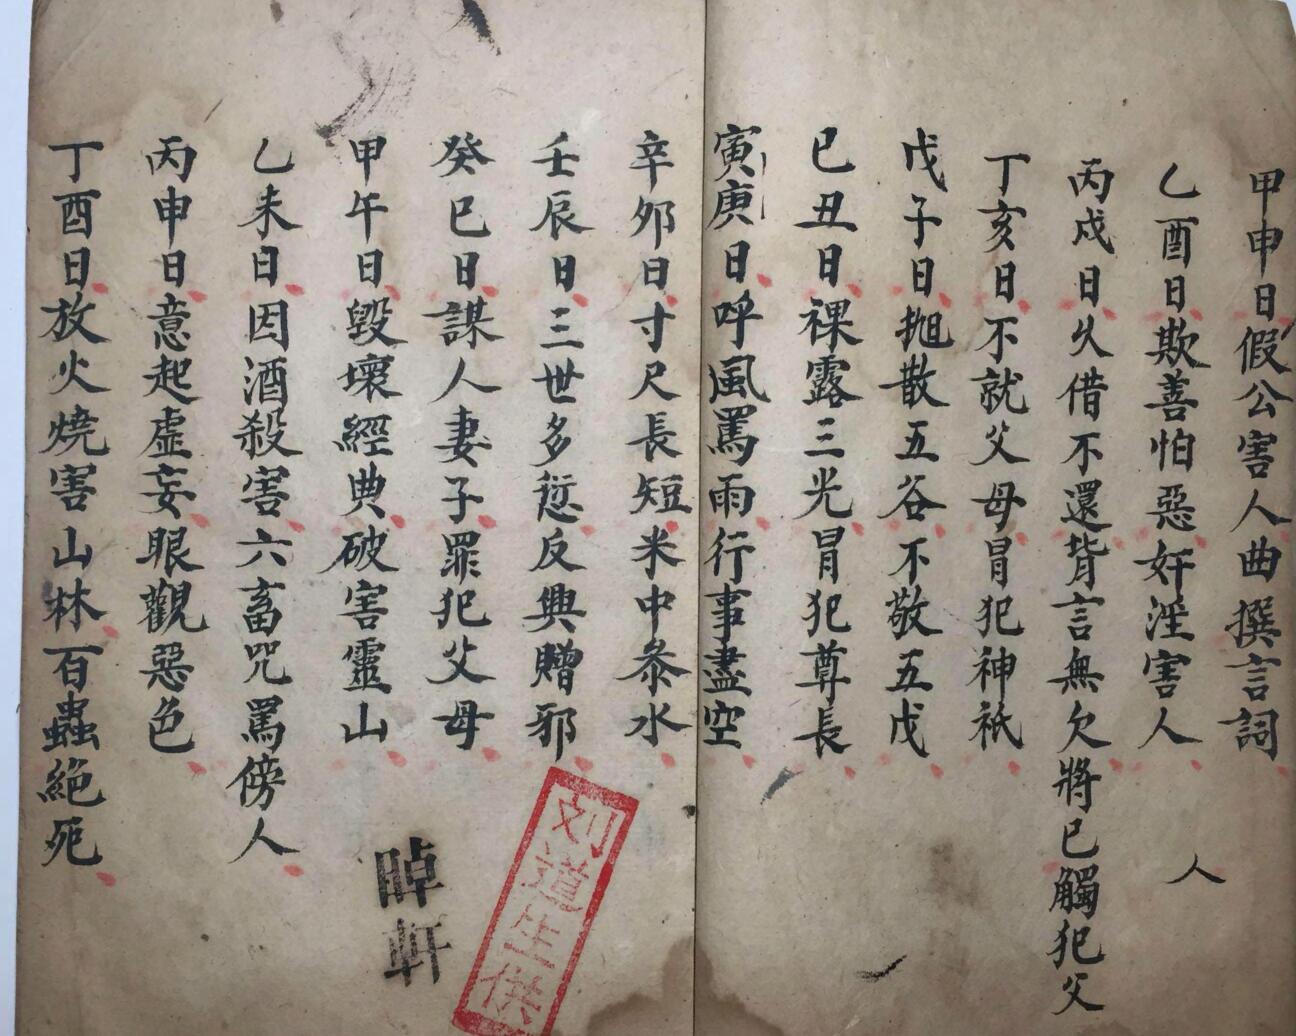 甲申日假公害人曲撰言詞
乙酉日欺善怕惡奸淫害人
人
丙戍日久借不還背言無欠將已觸犯父
丁亥日不就父母冒犯神祇
戊子日抛散五谷不敬五戊
已丑日裸露三光冒犯尊長
寅庚日呼風罵雨行事盡空
辛夘日寸尺長短米中叅水
壬辰日三世多愆反興贈邪
癸巳日謀人妻子罪犯父母
甲午日毀壞經典破害靈山
乙未日因酒殺害六畜咒罵傍人
丙申日意起虛妄眼觀惡色
丁酉日放火燒害山林百蟲絕死
刘道生供
晫軒